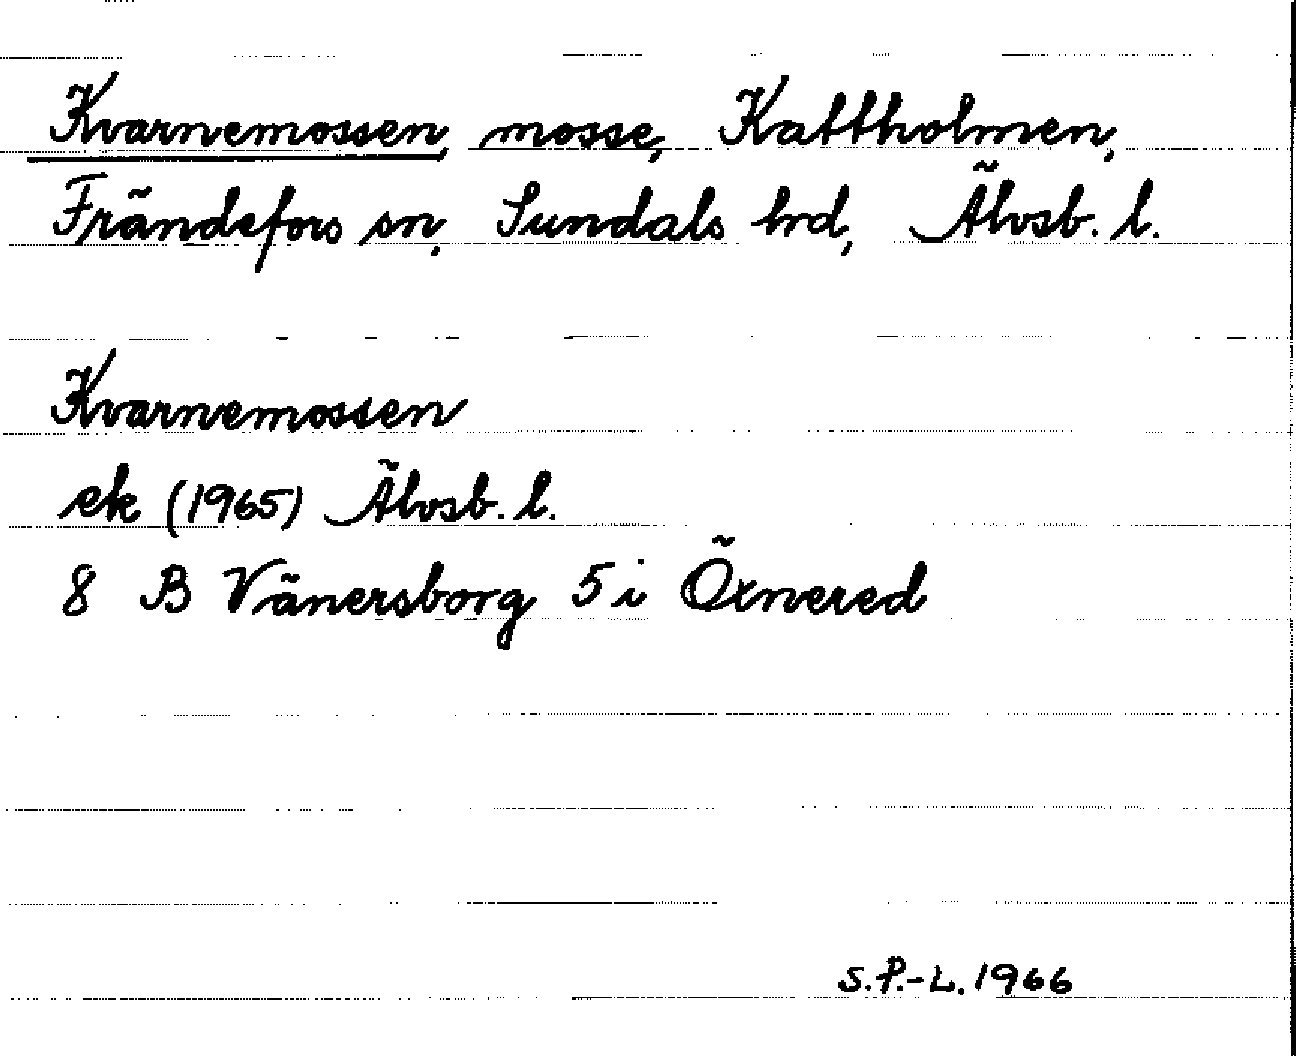 Kvarnemossen, mosse, Kattholmen,
Frändefors sn, Sundals hrd, Älvsb. l.
Kvarnemossen
ek (1965) Älvsb. l.
8 B Vänersborg 5 i Öxnered
S.P.-L. 1966